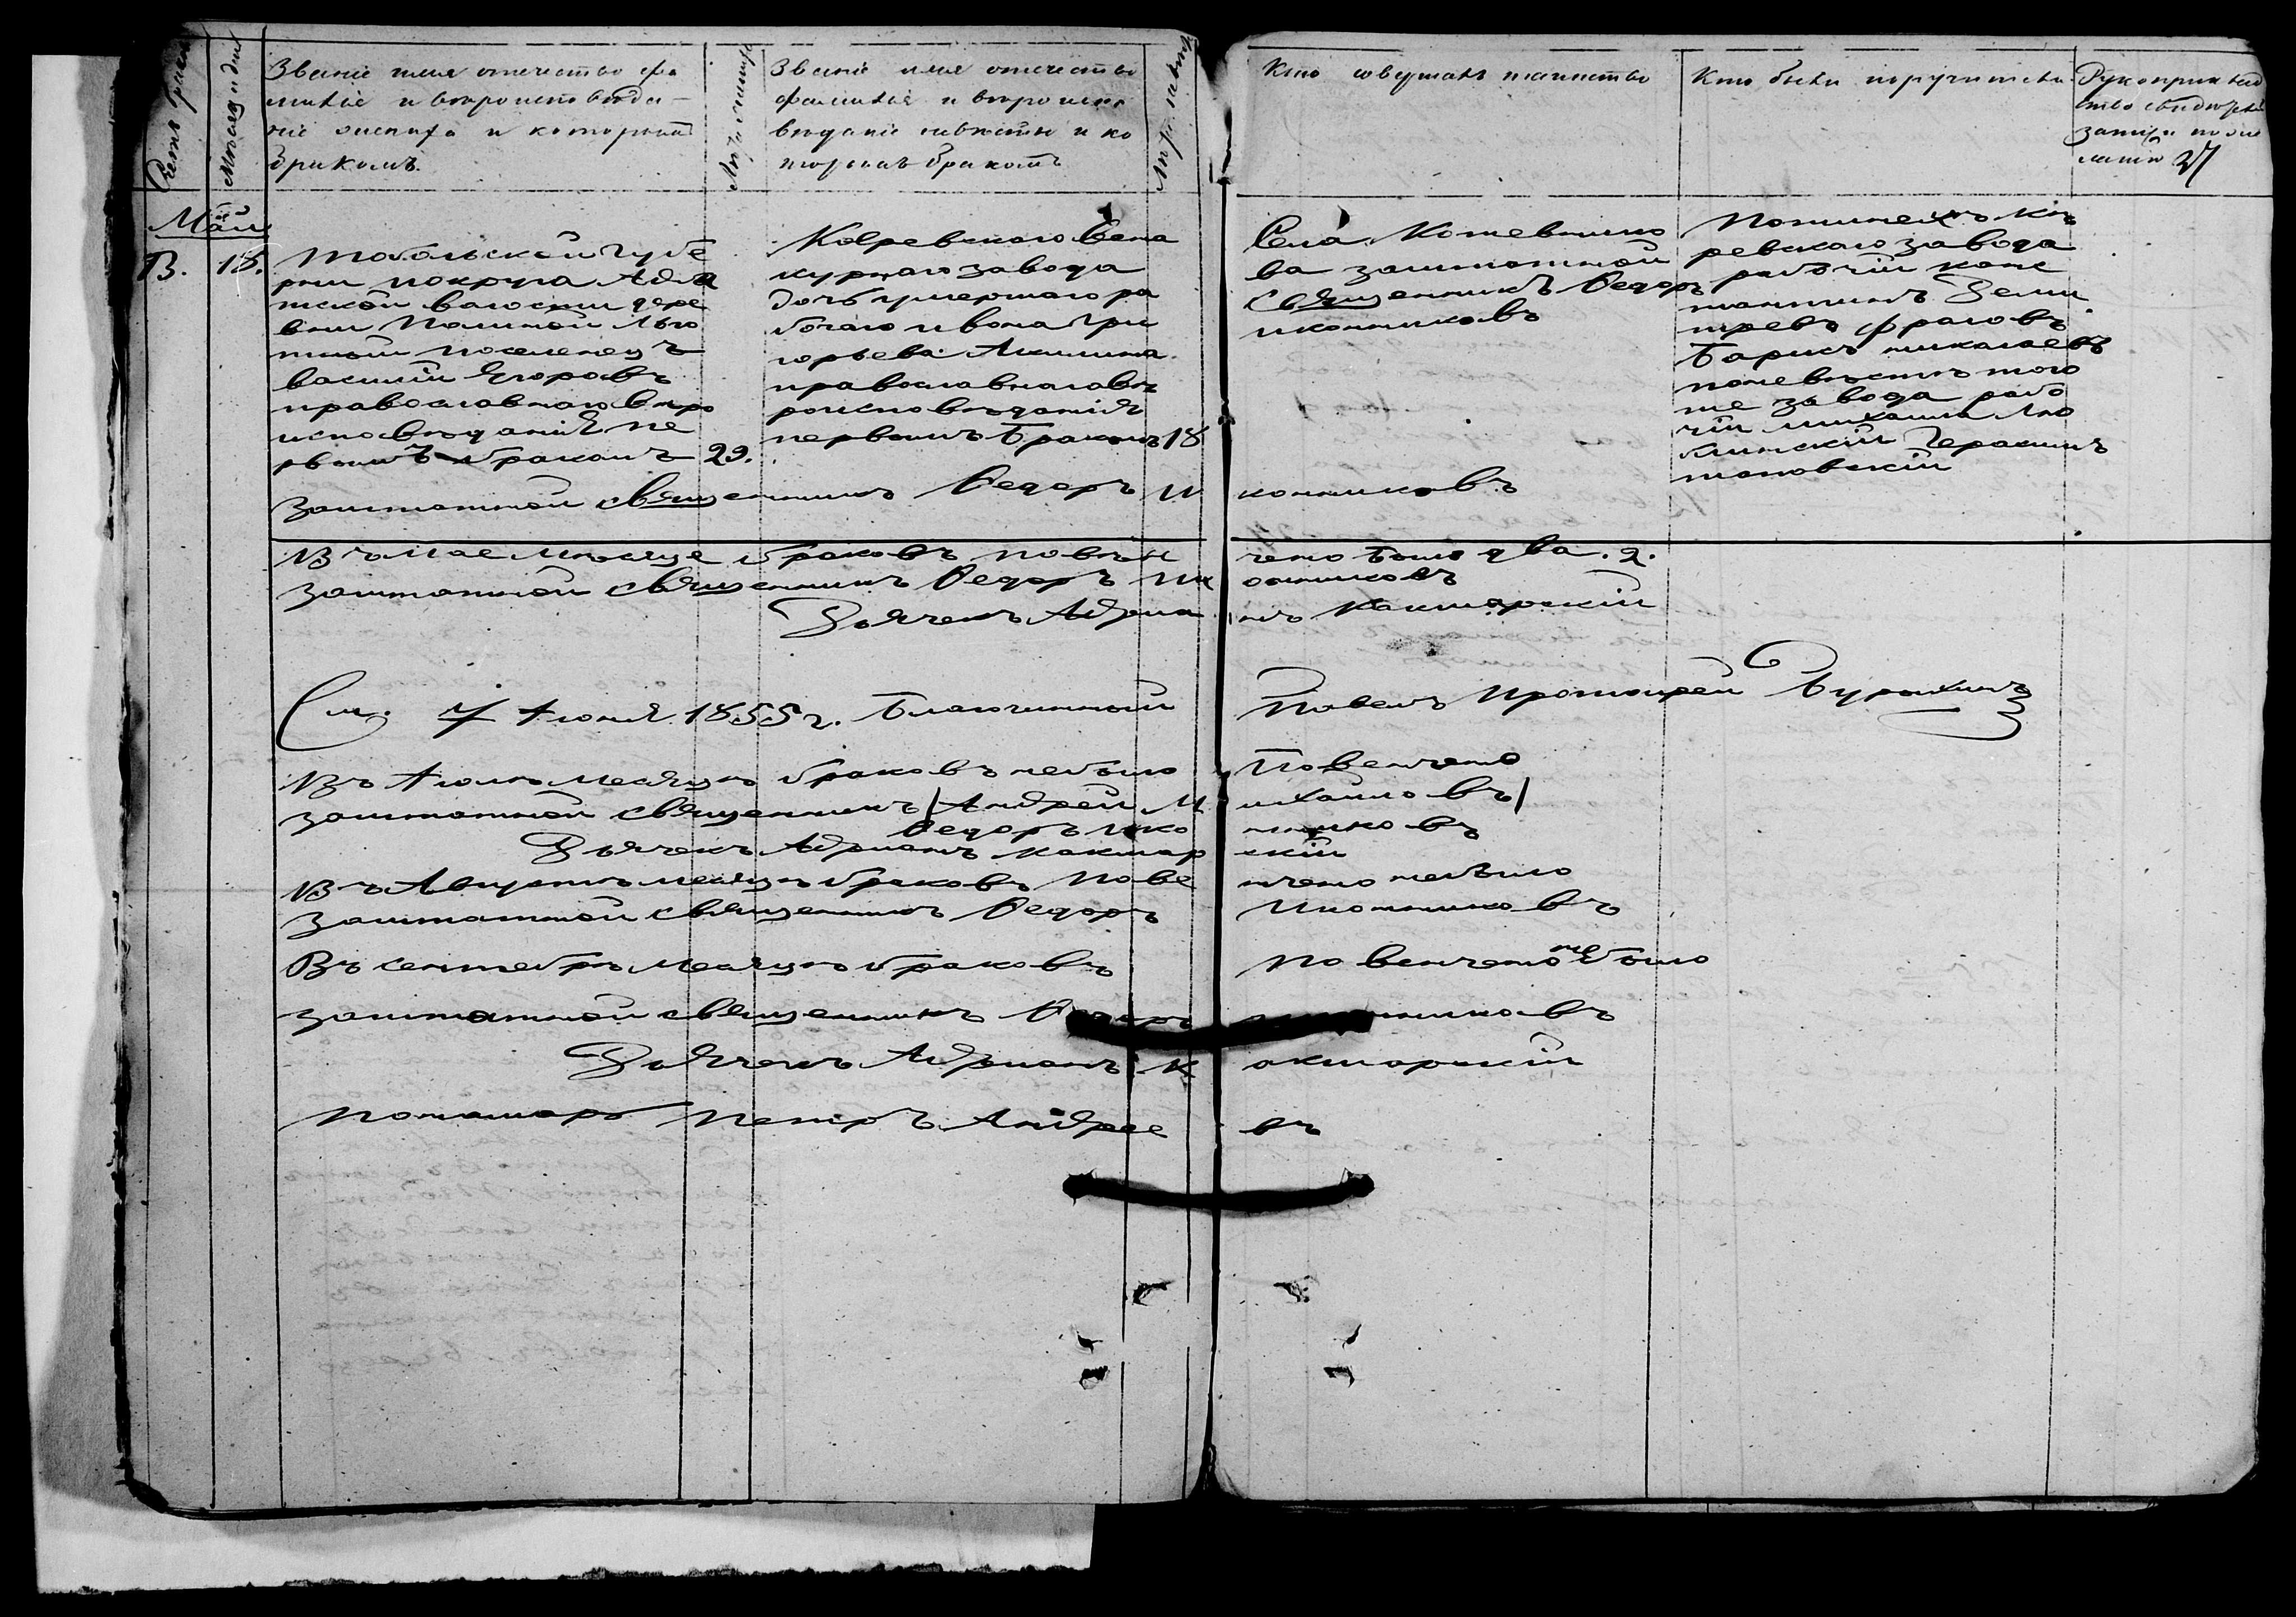 Счетъ браковъ
Мѣсяцъ и дни
Званіе имя отечество фа
миліе и вѣроисповѣда-
ніе жениха и которымъ
бракомъ.
Лѣта жениха
Званіе имя отечество
фамиліе и вѣроиспо
вѣданіе невѣсты и ко
торымъ бракомъ
Лѣта невѣсты
Кто совершалъ таинство
Кто были поручители
Рукоприклад
ство свидѣтелей
записи по же
ланію
Маія
В. 18.
Тобольской губе
рніи округа
волости дере
вни
поселенецъ
василій Егоровъ
православнаго вѣро
исповѣданія пе
рвымъ бракомъ 29.
Керевскаго Вено
куреннаго завода
дочь умершаго ра
бочаго ивона Гри
горьева Акилина
православнаго вѣ
роисповѣданія
первымъ Бракомъ 18
Села Кожевнико
ва заштатной
священникъ Федоръ
иконниковъ
По женихѣ Ке
ревскаго завода
рабочій конс
тантинъ Деми
триевъ фроловъ
Борисъ николаевъ
поневѣстѣ того
же завода рабо
чіи михаила
заштатной священникъ Федоръ иконниковъ
Въ мае мѣсяце браковъ повѣнчено было два. 2.
заштатной священникъ Федоръ иконниковъ
Дьячекъ Адрианъ Какшарскій
См. 7 Июня 1855 г. Благочинный Павелъ Протоиерей
Въ Июлѣ месяцѣ браковъ небыло Повенчено
заштатной священникъ / Андрей михаиловъ /
Федоръ иконниковъ
Дьячекъ Адрианъ какшарскій
Въ Августѣ месяцѣ браковъ повенчено небыло
заштатной священникъ Федоръ Иконниковъ
Въ сентебрѣ месяцѣ браковъ повенчено не было
заштатной священникъ Федоръ иконниковъ
Дьячекъ Адрианъ Какшарскій
Пономарь Петръ Андреевъ